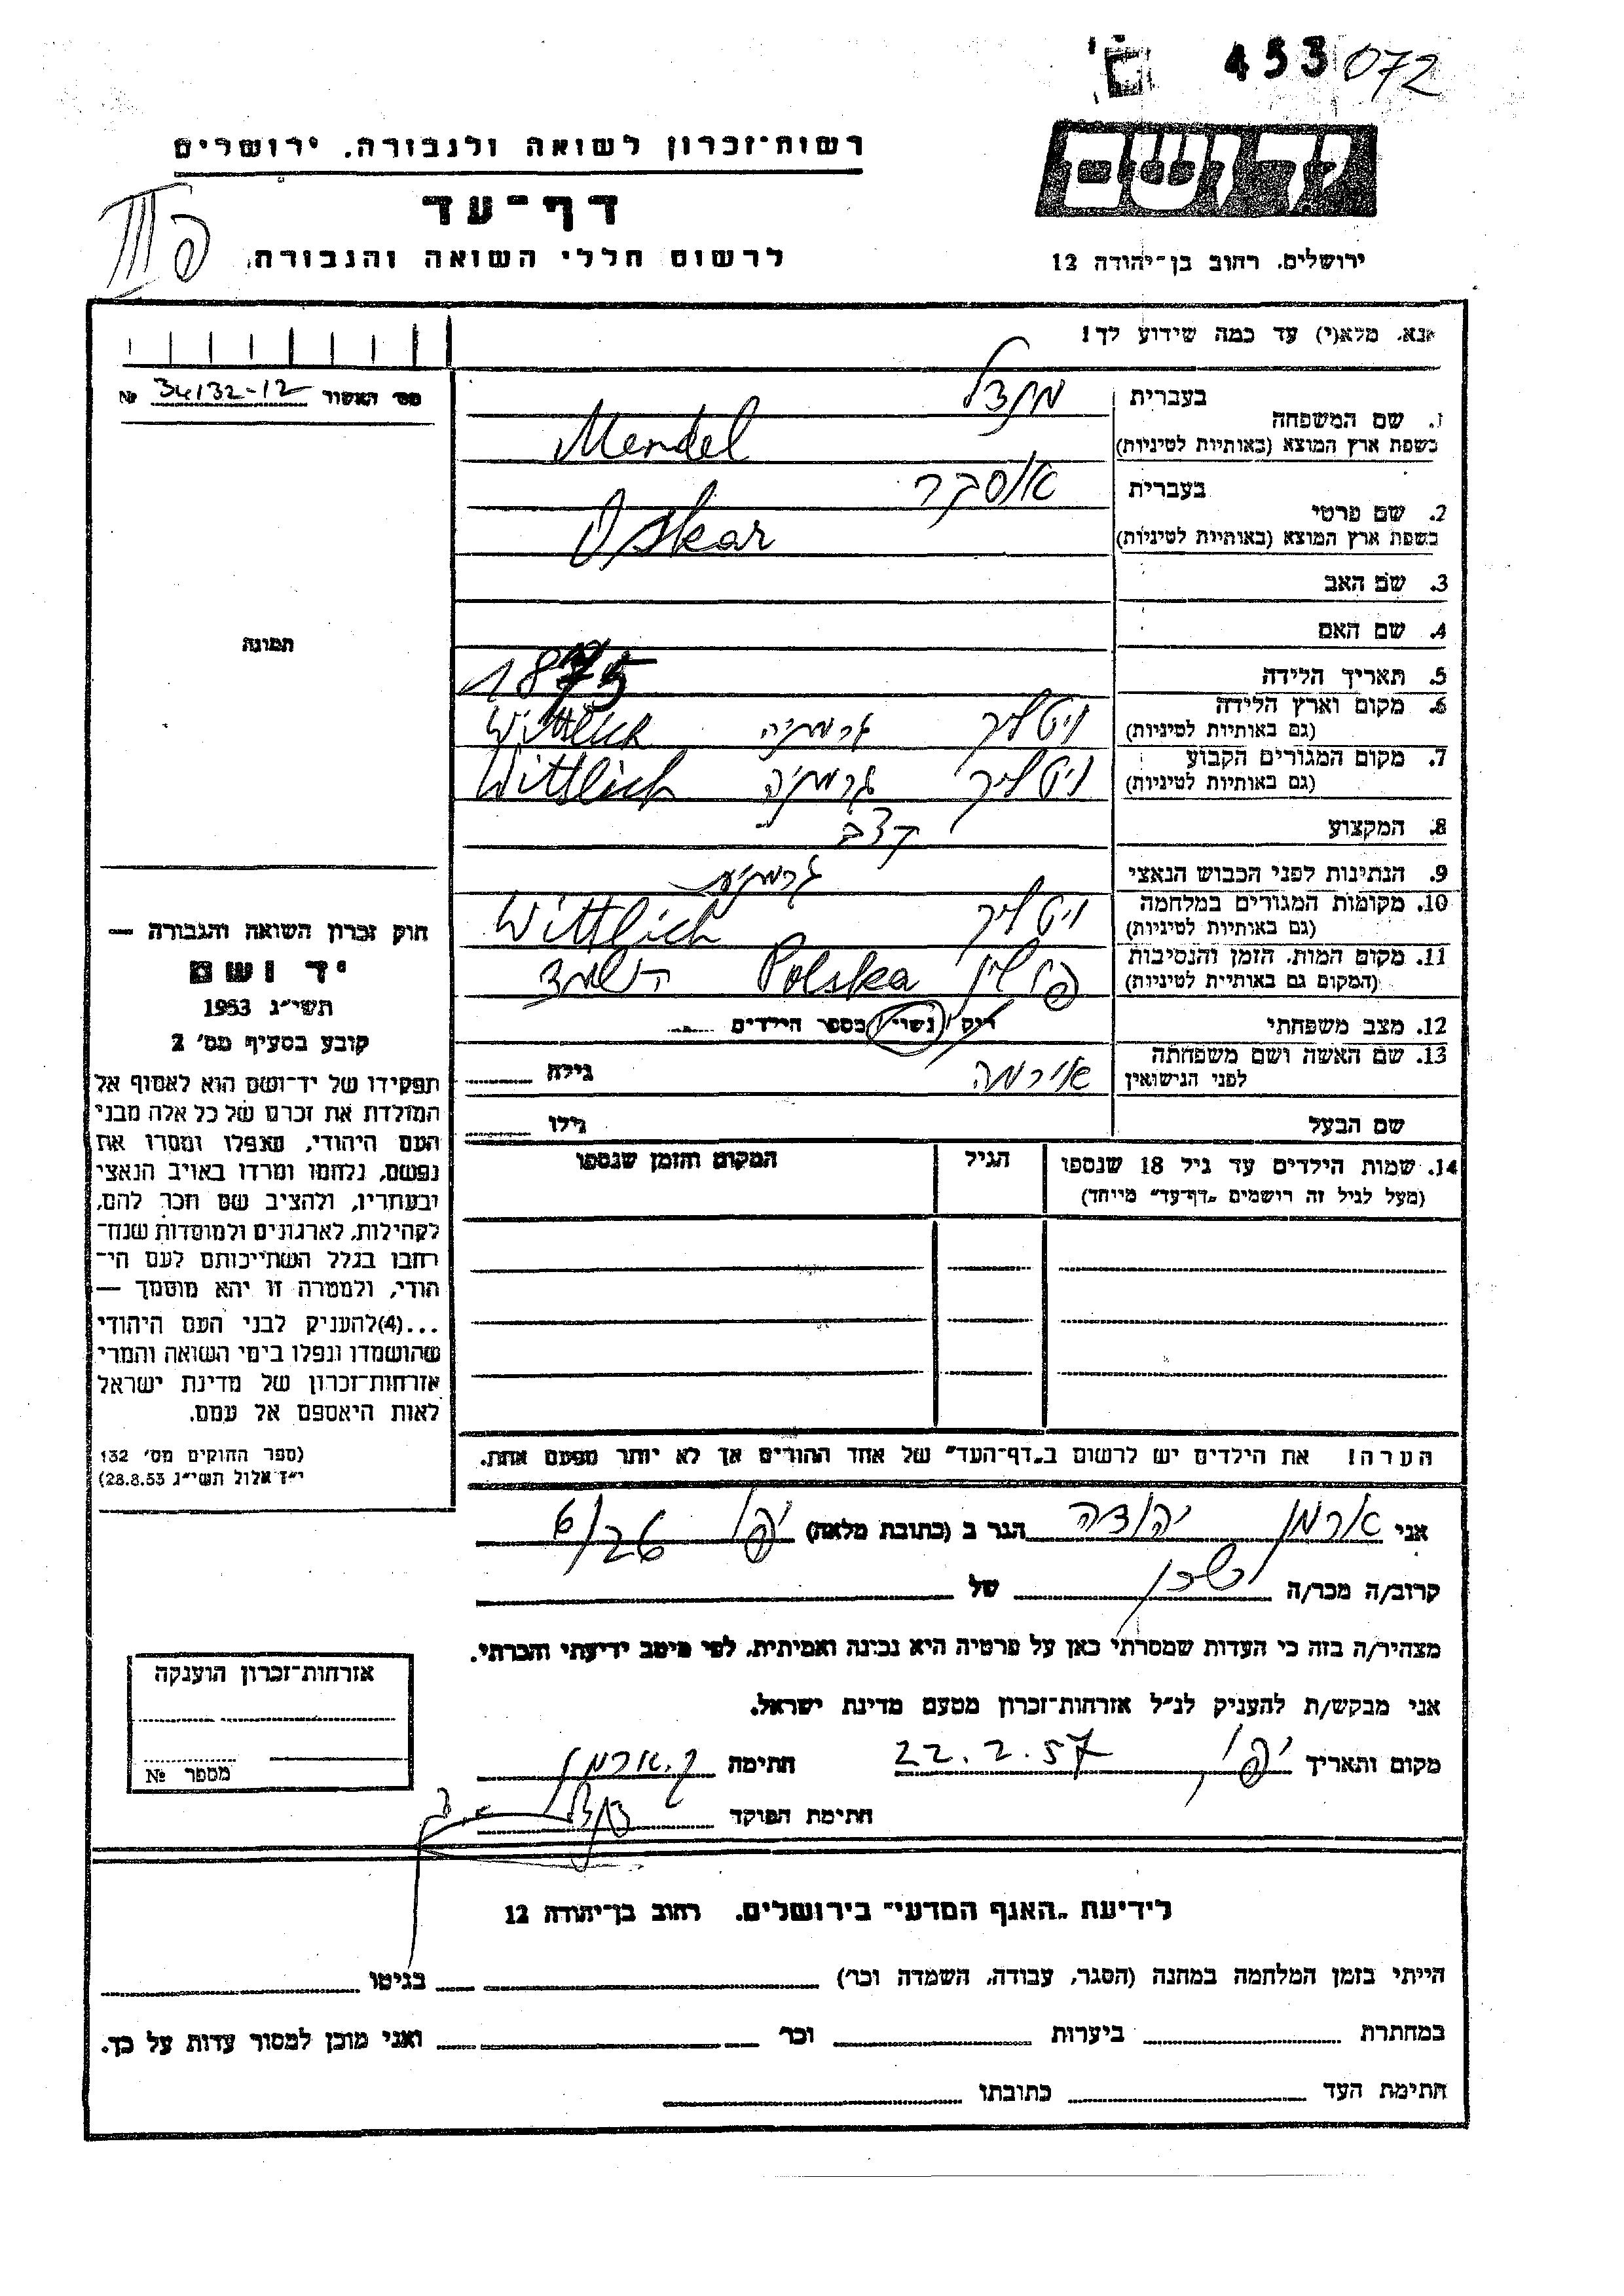 453072
יד ושם
רשות־זכרון לשואה ולגבורה. ירושלים
דף־עד
לרשום חללי השואה והגבורה
ירושלים. רחוב בן־יהודה 12
אנא. מלא(י) עד כמה שידוע לך!
מס׳ האשור 34132-12 №
תמונה
בעברית מנדל
1. שם המשפחה
בשפת ארץ המוצא (באותיות לטיניות) Mendel
בעברית אוסקר
2. שם פרטי
בשפת ארץ המוצא (באותיות לטיניות) Oskar
3. שם האב
4. שם האם
5. תאריך הלידה 1875
6. מקום וארץ הלידה
(גם באותיות לטיניות) ויטליך גרמניה Wittlich
7. מקום המגורים הקבוע
(גם באותיות לטיניות) ויטליך גרמניה Wittlich
8. המקצוע קצב
9. הנתינות לפני הכבוש הנאצי גרמנית
10. מקומות המגורים במלחמה
(גם באותיות לטיניות) ויטליך Wittlich
11. מקום המות. הזמן והנסיבות
(המקום גם באותיות לטיניות) פולין Polska הושמד
12. מצב משפחתי נשוי מספר הילדים
13. שם האשה ושם משפחתה
לפני הנישואין אירמה גילה
שם הבעל גילו
14. שמות הילדים עד גיל 18 שנספו הגיל המקום והזמן שנספו
(מעל לגיל זה רושמים „דף־עד״ מייחד)
הערה! את הילדים יש לרשום ב„דף־העד״ של אחד ההורים אך לא יותר מפעם אחת.
חוק זכרון השואה והגבורה —
יד ושם
תשי״ג 1953
קובע בסעיף מס׳ 2
תפקידו של יד־ושם הוא לאסוף אל
המולדת את זכרם של כל אלה מבני
העם היהודי, שנפלו ומסרו את
נפשם, נלחמו ומרדו באויב הנאצי
ובעוזריו, ולהציב שם וזכר להם,
לקהילות, לארגונים ולמוסדות שנח־
רחבו בגלל השתייכותם לעם הי־
הודי, ולמטרה זו יהא מוסמך —
...(4)להעניק לבני העם היהודי
שהושמדו ונפלו בימי השואה והמרי
אזרחות־זכרון של מדינת ישראל
לאות היאספם אל עמם.
(ספר החוקים מס׳ 132
י״ז אלול תשי״ג 28.8.53)
אני ארמן יהודה הגר ב (כתובת מלאה) יפו 6/26
קרוב/ה מכר/ה שכן של
מצהיר/ה בזה כי העדות שמסרתי כאן על פרטיה היא נכונה ואמיתית. לפי מיטב ידיעתי והכרתי.
אני מבקש/ת להעניק לנ״ל אזרחות־זכרון מטעם מדינת ישראל.
מקום ותאריך יפו, 22.2.57 חתימה י. ארמן
חתימת הפוקד
אזרחות־זכרון הוענקה
מספר №
לידיעת „האגף המדעי״ בירושלים. רחוב בן־יהודה 12
הייתי בזמן המלחמה במחנה (הסגר, עבודה, השמדה וכו׳) בגיטו
במחתרת ביערות וכו׳ ואני מוכן למסור עדות על כך.
חתימת העד כתובתו